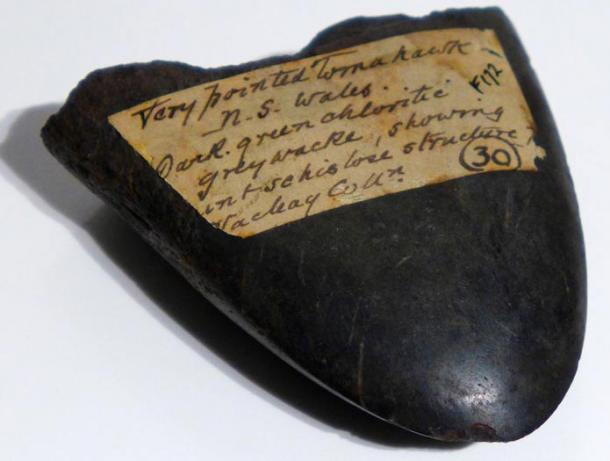 Very pointed Tomahawk
N. S. Wales.
Dark green chloritic
greywacke, showing
schistose structure
Colln
F172
30